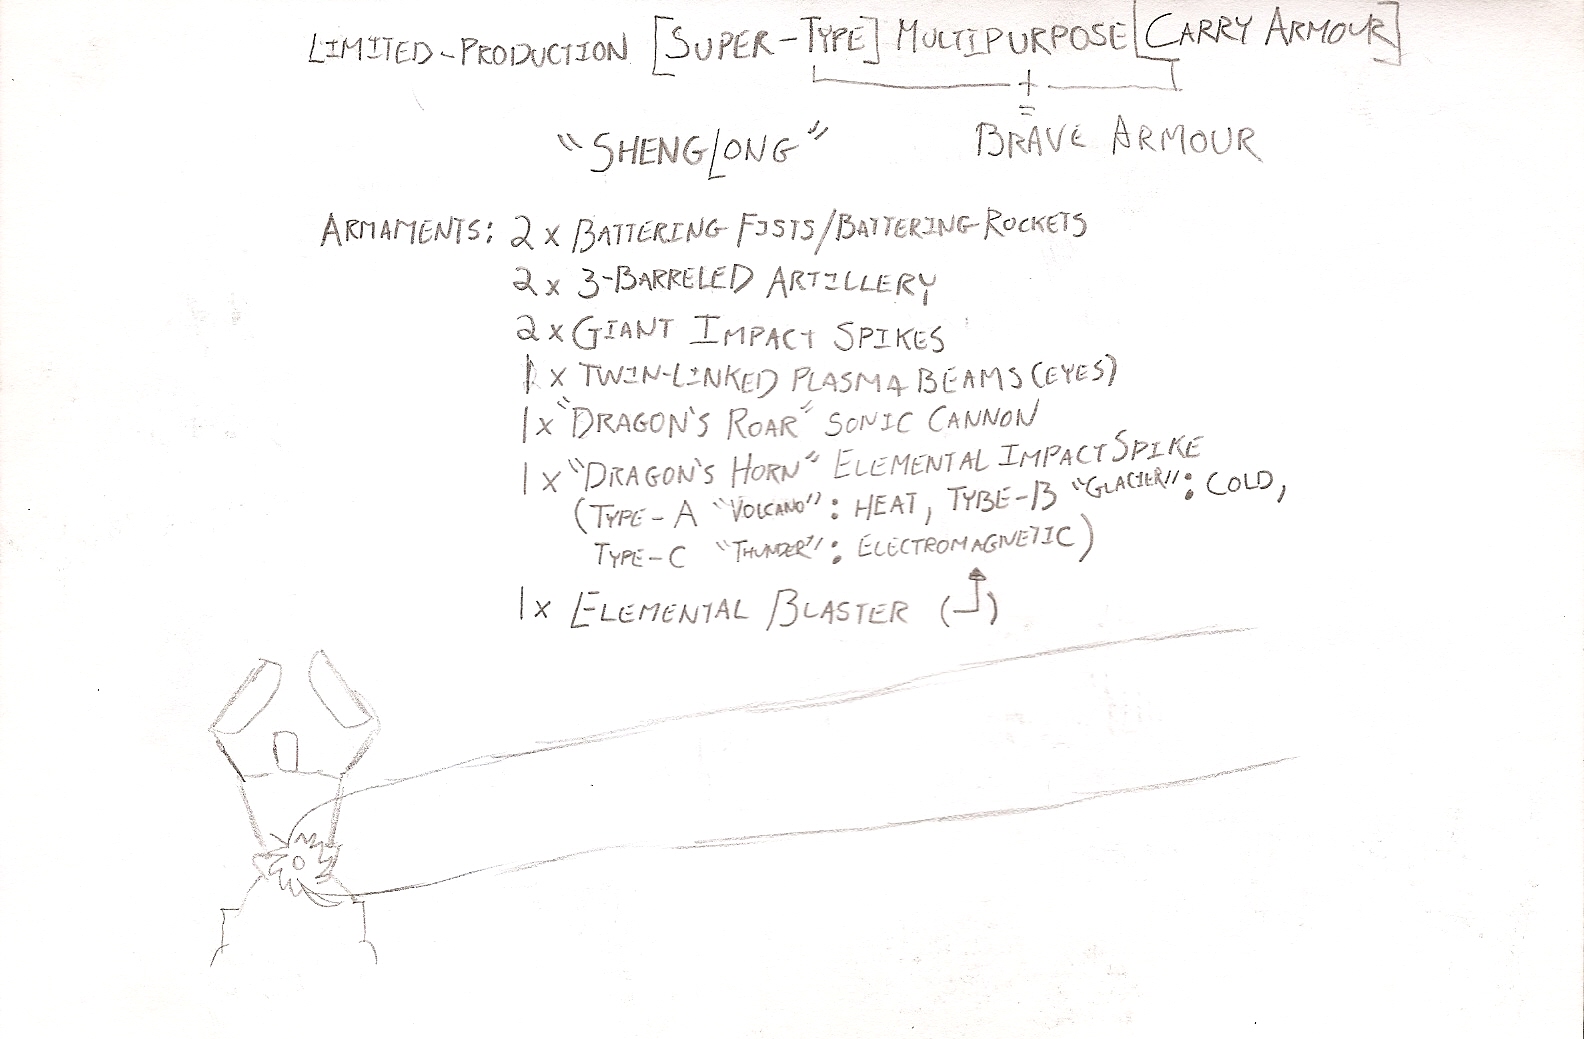 LIMITED-PRODUCTION [SUPER-TYPE] MULTIPURPOSE [CARRY ARMOUR]
+
=
"SHENGLONG" BRAVE ARMOUR
ARMAMENTS: 2 x BATTERING FISTS/BATTERING ROCKETS
2 x 3-BARRELED ARTILLERY
2 x GIANT IMPACT SPIKES
1 x TWIN-LINKED PLASMA BEAMS (EYES)
1 x "DRAGON'S ROAR" SONIC CANNON
1 x "DRAGON'S HORN" ELEMENTAL IMPACT SPIKE
(TYPE-A "VOLCANO": HEAT, TYBE-B "GLACIER": COLD,
TYPE-C "THUNDER": ELECTROMAGNETIC)
1x ELEMENTAL BLASTER ( )